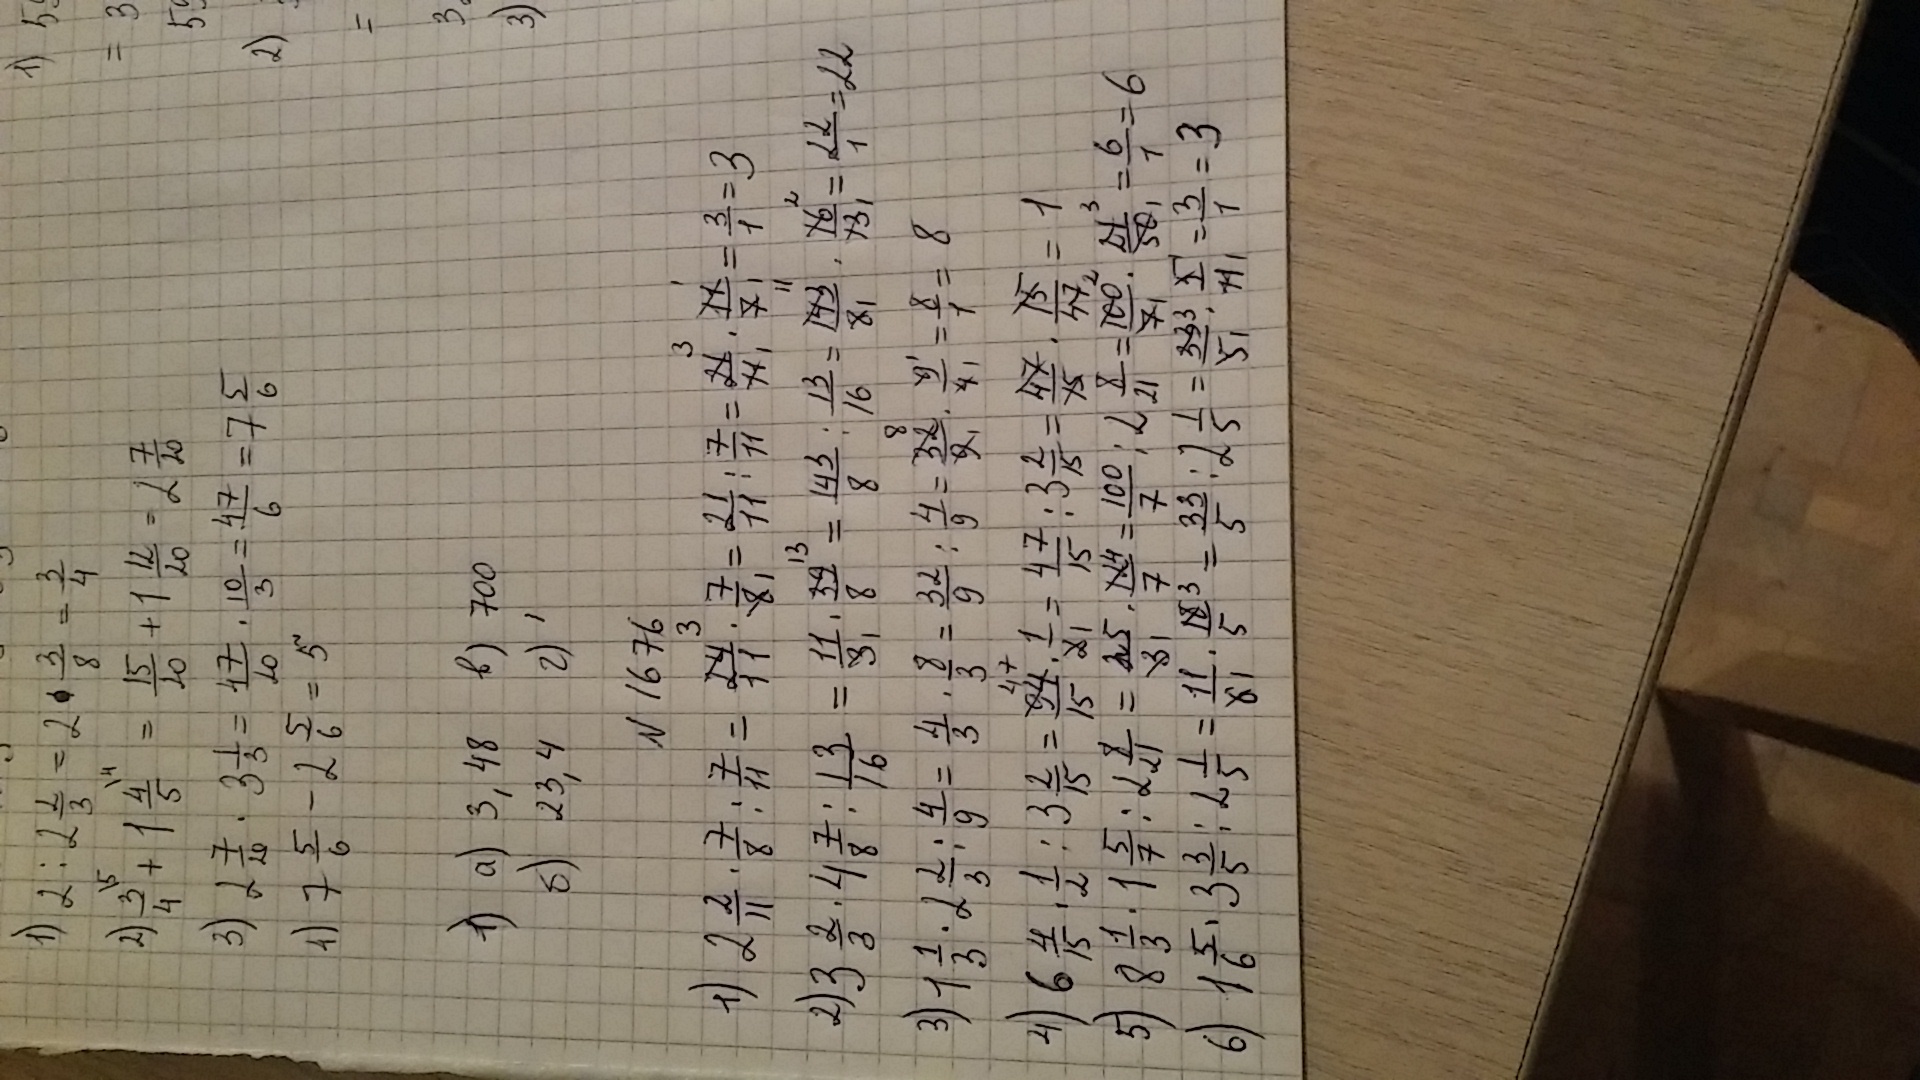 1) 2 : 2 2/3 = 2 · 3/8 = 3/4
2) 3/4 + 1 4/5 = 15/20 + 1 12/20 = 2 7/20
3) 2 7/20 · 3 1/3 = 47/20 · 10/3 = 47/6 = 7 5/6
4) 7 5/6 - 2 5/6 = 5
1) а) 3,48 в) 700
б) 23,4 г) 1
N 1676
1) 2 2/11 · 7/8 : 7/11 = 24/11 · 7/8 : 7/11 = 21/11 : 7/11 = 21/11 · 11/7 = 3/1 = 3
2) 3 2/3 · 4 7/8 : 13/16 = 11/3 · 39/8 = 143/8 : 13/16 = 143/8 · 16/13 = 22/1 = 22
3) 1 1/3 · 2 2/3 : 4/9 = 4/3 · 8/3 = 32/9 : 4/9 = 32/9 · 9/4 = 8/1 = 8
4) 6 4/15 · 1/2 : 3 2/15 = 94/15 · 1/2 = 47/15 : 3 2/15 = 47/15 · 15/47 = 1
5) 8 1/3 · 1 5/7 : 2 8/21 = 25/3 · 12/7 = 100/7 : 2 8/21 = 100/7 · 21/50 = 6/1 = 6
6) 1 5/6 · 3 3/5 : 2 1/5 = 11/6 · 18/5 = 33/5 : 2 1/5 = 33/5 · 5/11 = 3/1 = 3
1)
2)
3)